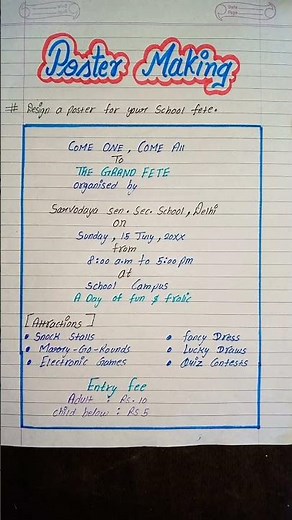 Date
Page
Poster Making
# Design a poster for your School fete.
COME ONE, COME All
To
THE GRAND FETE
organised by
Sarvodaya sen. Sec. School, Delhi
on
Sunday, 15 Juny, 20XX
from
8:00 a.m to 5:00 pm
at
School Campus
A Day of fun & frolic
[Attractions]
• Snack Stalls
• Marry-Go-Rounds
• Electronic Games
• fancy Dress
• Lucky Draws
• Quiz Contests
Entry fee
Adult : Rs. 10
child below : Rs 5